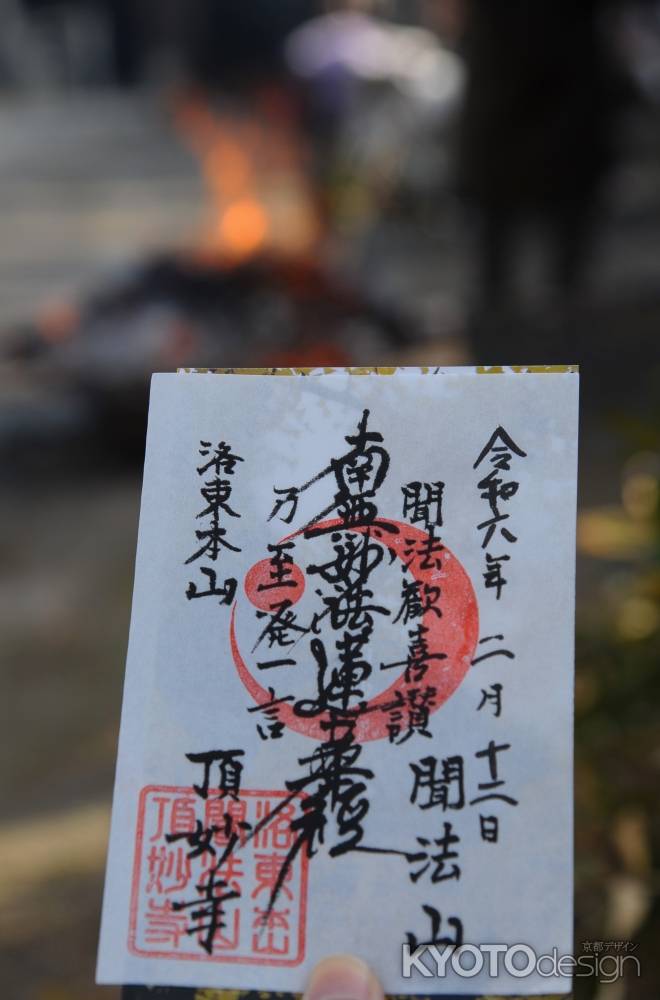 令和六年 二月十二日
聞法歓喜讃
聞法山
南無妙法蓮華経
乃至発一言
洛東本山
頂妙寺
洛東本山
聞法山
頂妙寺
京都デザイン
KYOTOdesign